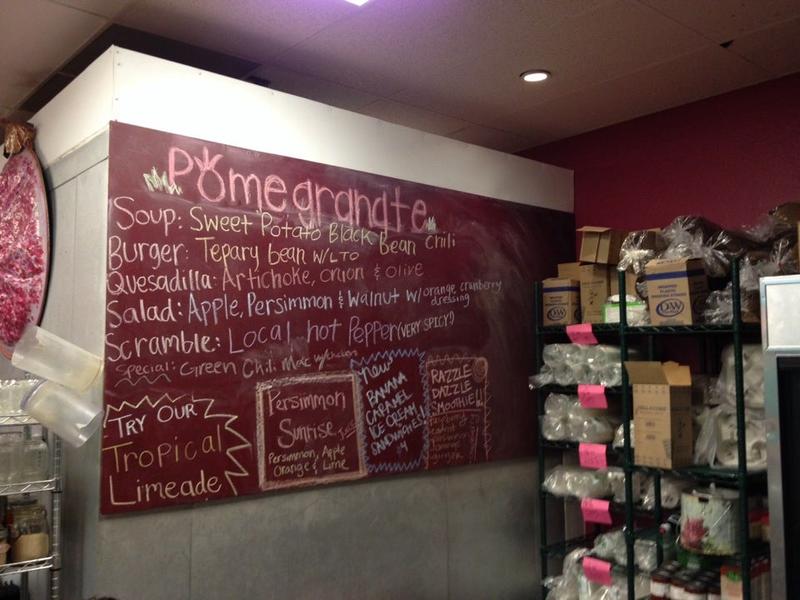 Pomegranate
Soup: Sweet Potato Black Bean Chili
Burger: Tepary bean w/LTO
Quesadilla: Artichoke, onion & olive
Salad: Apple, Persimmon & Walnut w/ orange cranberry
dressing
Scramble: Local hot Pepper (VERY SPICY!)
Special: Green Chili Mac
TRY OUR
Tropical
Limeade
Persimmon
Sunrise
Persimmon, Apple
Orange & Lime
New
BANANA
CARAMEL
ICE CREAM
SANDWICHES!
$4
RAZZLE
DAZZLE
SMOOTHIE!!
D&W